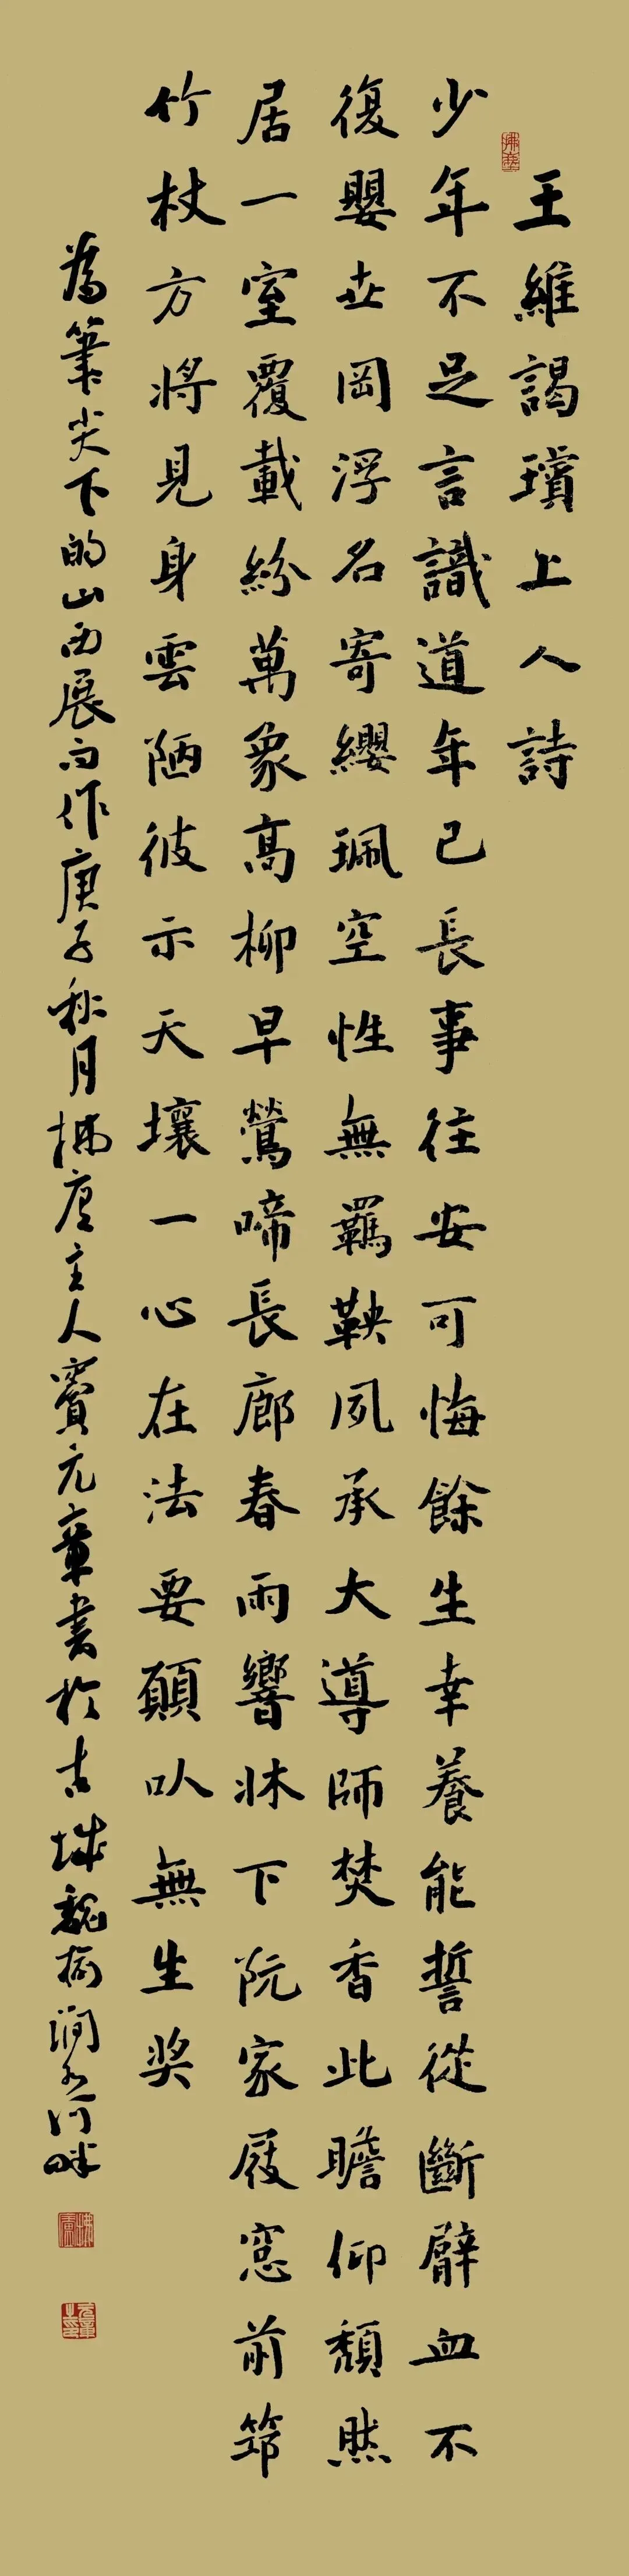 王維謁璿上人詩
少年不足言識道年已長事往安可悔餘生幸養能誓從斷臂血不
復嬰世岡浮名寄纓珮空性無羈鞅夙承大導師焚香此瞻仰頹然
居一室覆載紛萬象高柳早鶯啼長廊春雨響牀下阮家屐窓前筇
竹杖方將見身雲陋彼示天壤一心在法要願以無生奖
為筆尖下的山西展而作庚子秋月拂主人元章書於古城魏榆澗河畔